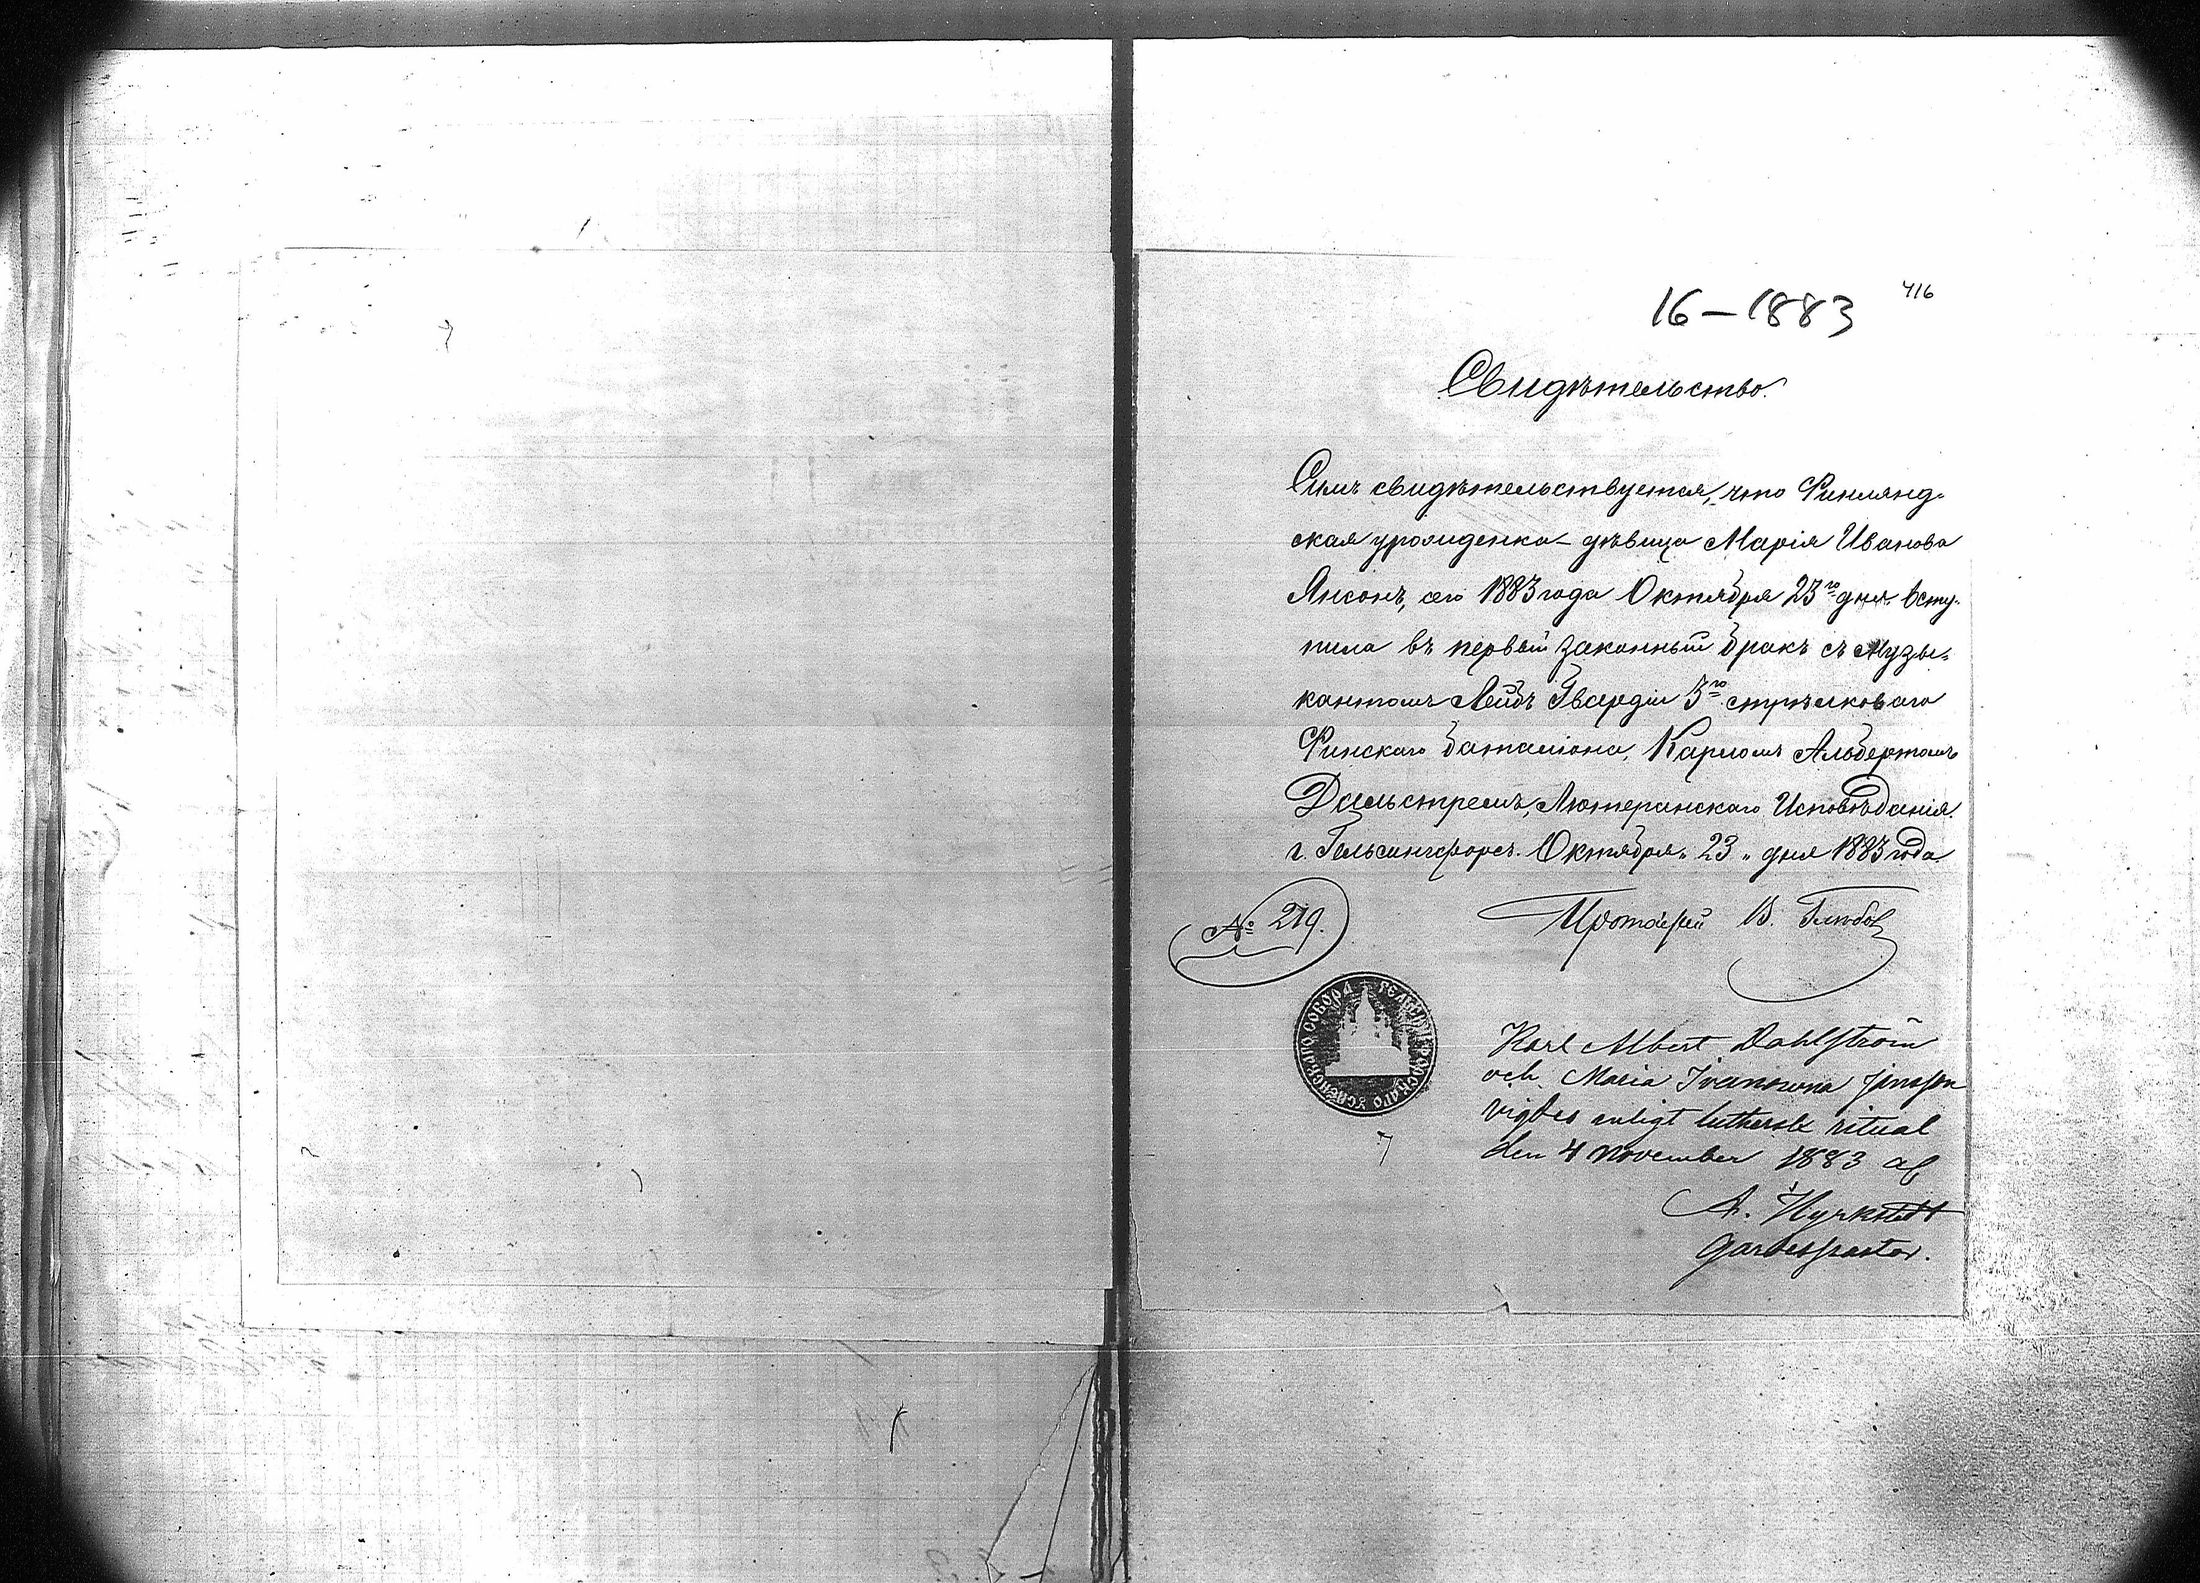 16-1883
416
Свидѣтельство.
Симъ свидѣтельствуется, что Финлянд-
ская уроженка - дѣвица Марія Иванова
Янсонъ, сего 1883 года Октября 23го дня всту-
пила въ первый законный бракъ съ музы-
кантомъ Лейбъ Гвардіи 3го стрѣлковаго
Финскаго баталіона, Карломъ Альбертомъ
Дальстремъ, Лютеранскаго Исповѣданія.
г. Гельсингфорсъ. Октября "23" дня 1883 года
№ 219.
Протоіерей В.
УСПЕНСКАГО СОБОРА
Karl Albert Dahlström
och Maria Ivanowna Jansson
vigdes enligt luthersk ritual
den 4 November 1883 af
A. Hyrkstedt
Gardespastor.